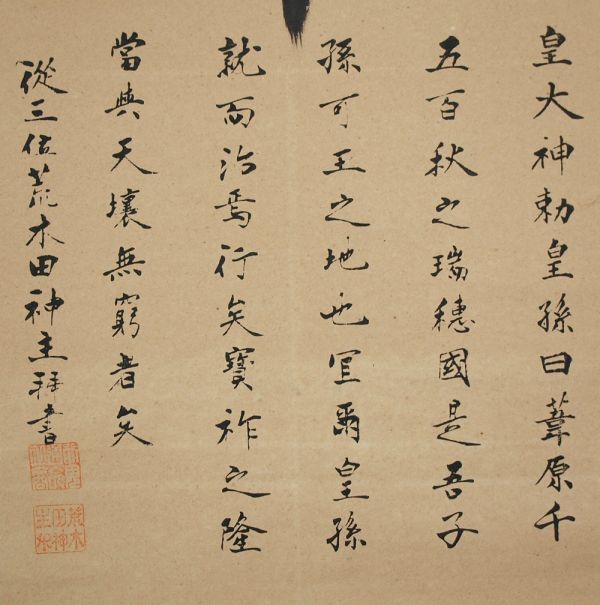 皇大神勅皇孫曰葦原千
五百秋之瑞穗國是吾子
孫可王之地也冝爾皇孫
就而治焉行矣寶祚之隆
當與天壤無窮者矣
從三位荒木田神主拜書